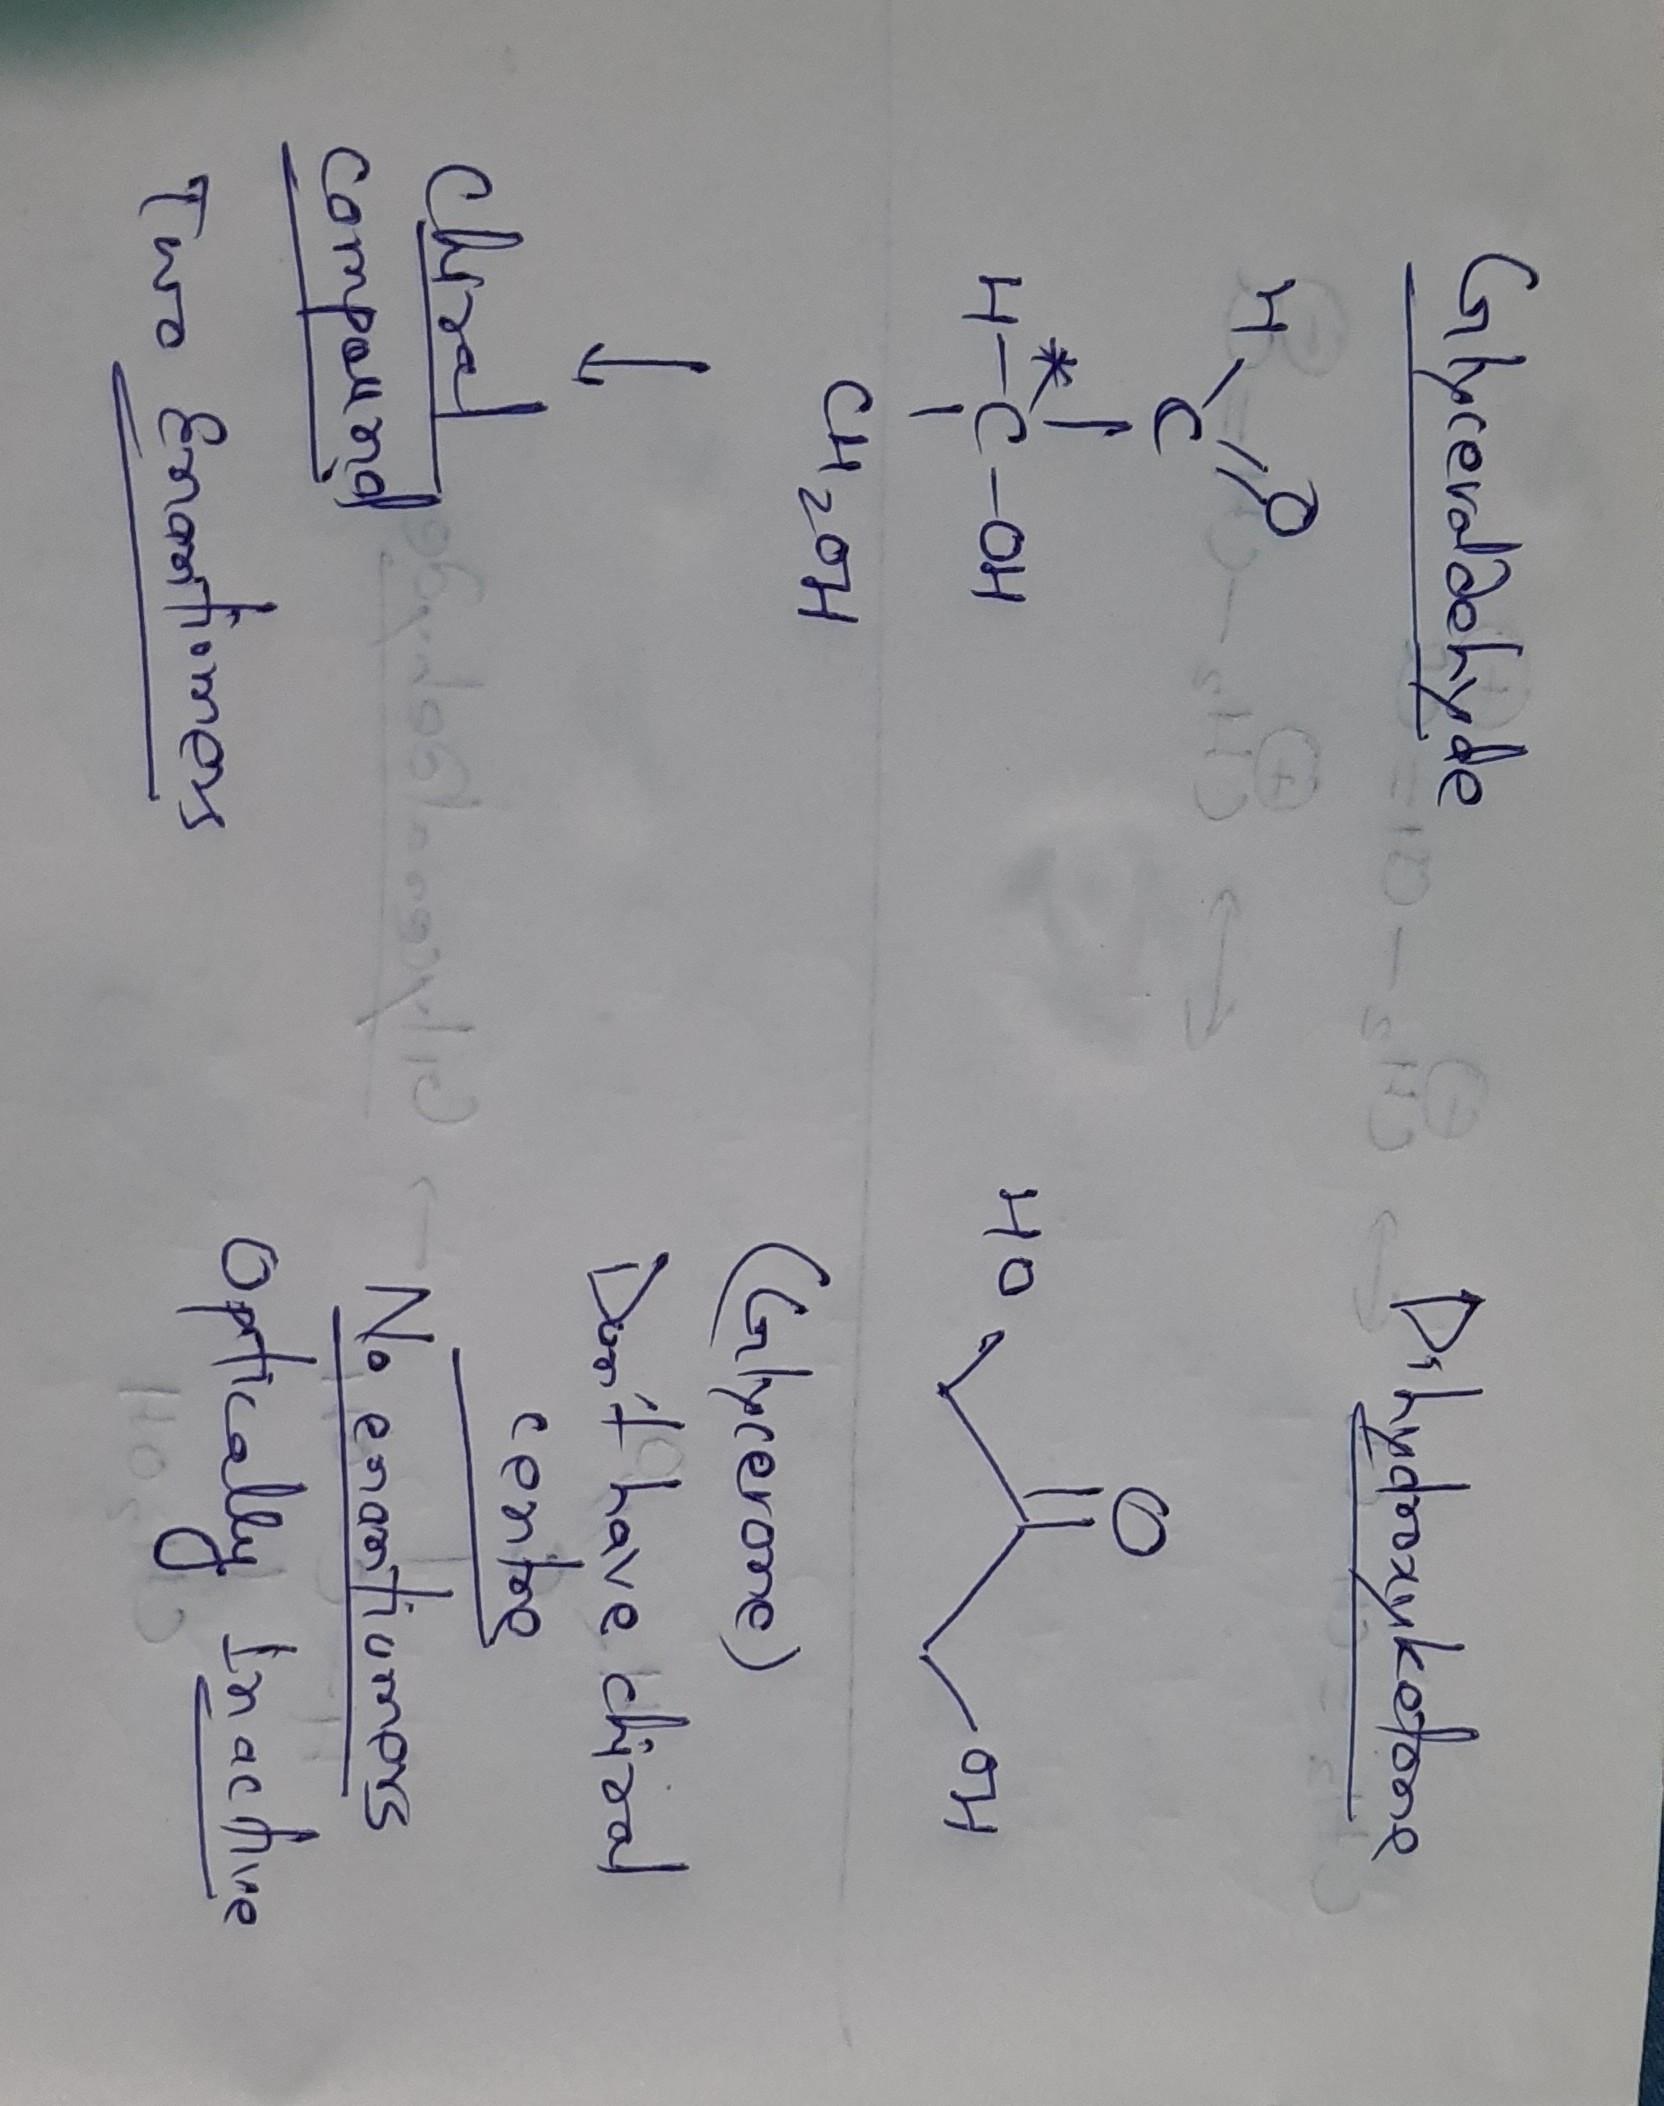 Glyceraldehyde
H O
C
*
H-C-OH
CH2OH
↓
Chiral
compound
Two Enantiomers
Dihydroxyketone
O
HO OH
(Glycerone)
Don't have chiral
centre
No enantiomers
Optically Inactive